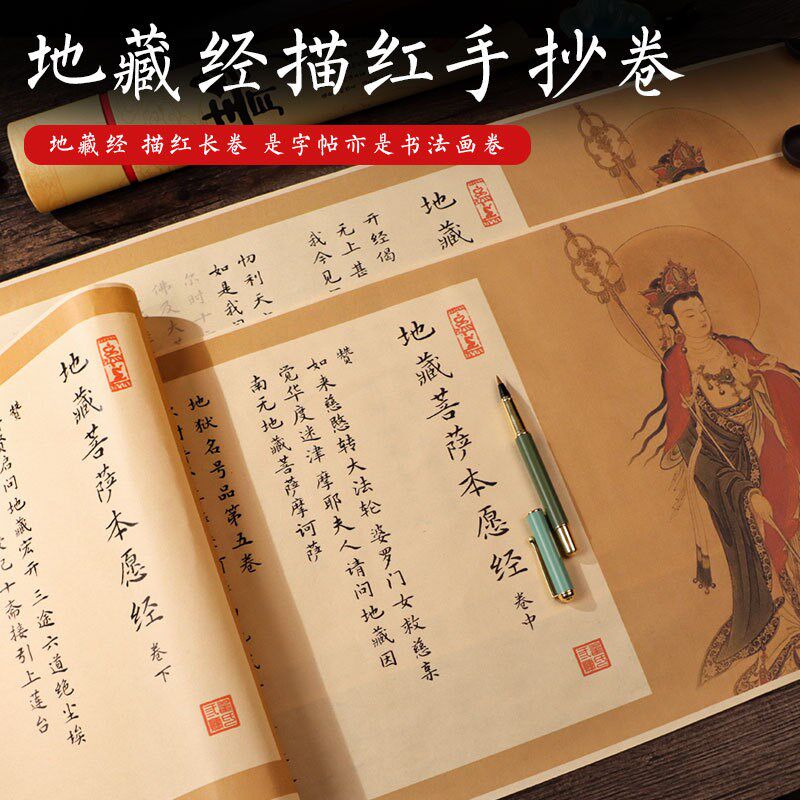 地藏经描红手抄卷
地藏经 描红长卷 是字帖亦是书法画卷
地藏
开经偈
无上甚
我今见
忉利天
如是我
尔时十
佛及大
地藏菩萨本愿经 卷中
赞
如来慈愍转大法轮 婆罗门女救慈亲
觉华度迷津 摩耶夫人请问地藏因
南无地藏菩萨摩诃萨
地狱名号品第五卷
地藏菩萨本愿经 卷下
赞
启问地藏宏开 三途六道绝尘埃
十斋接引上莲台